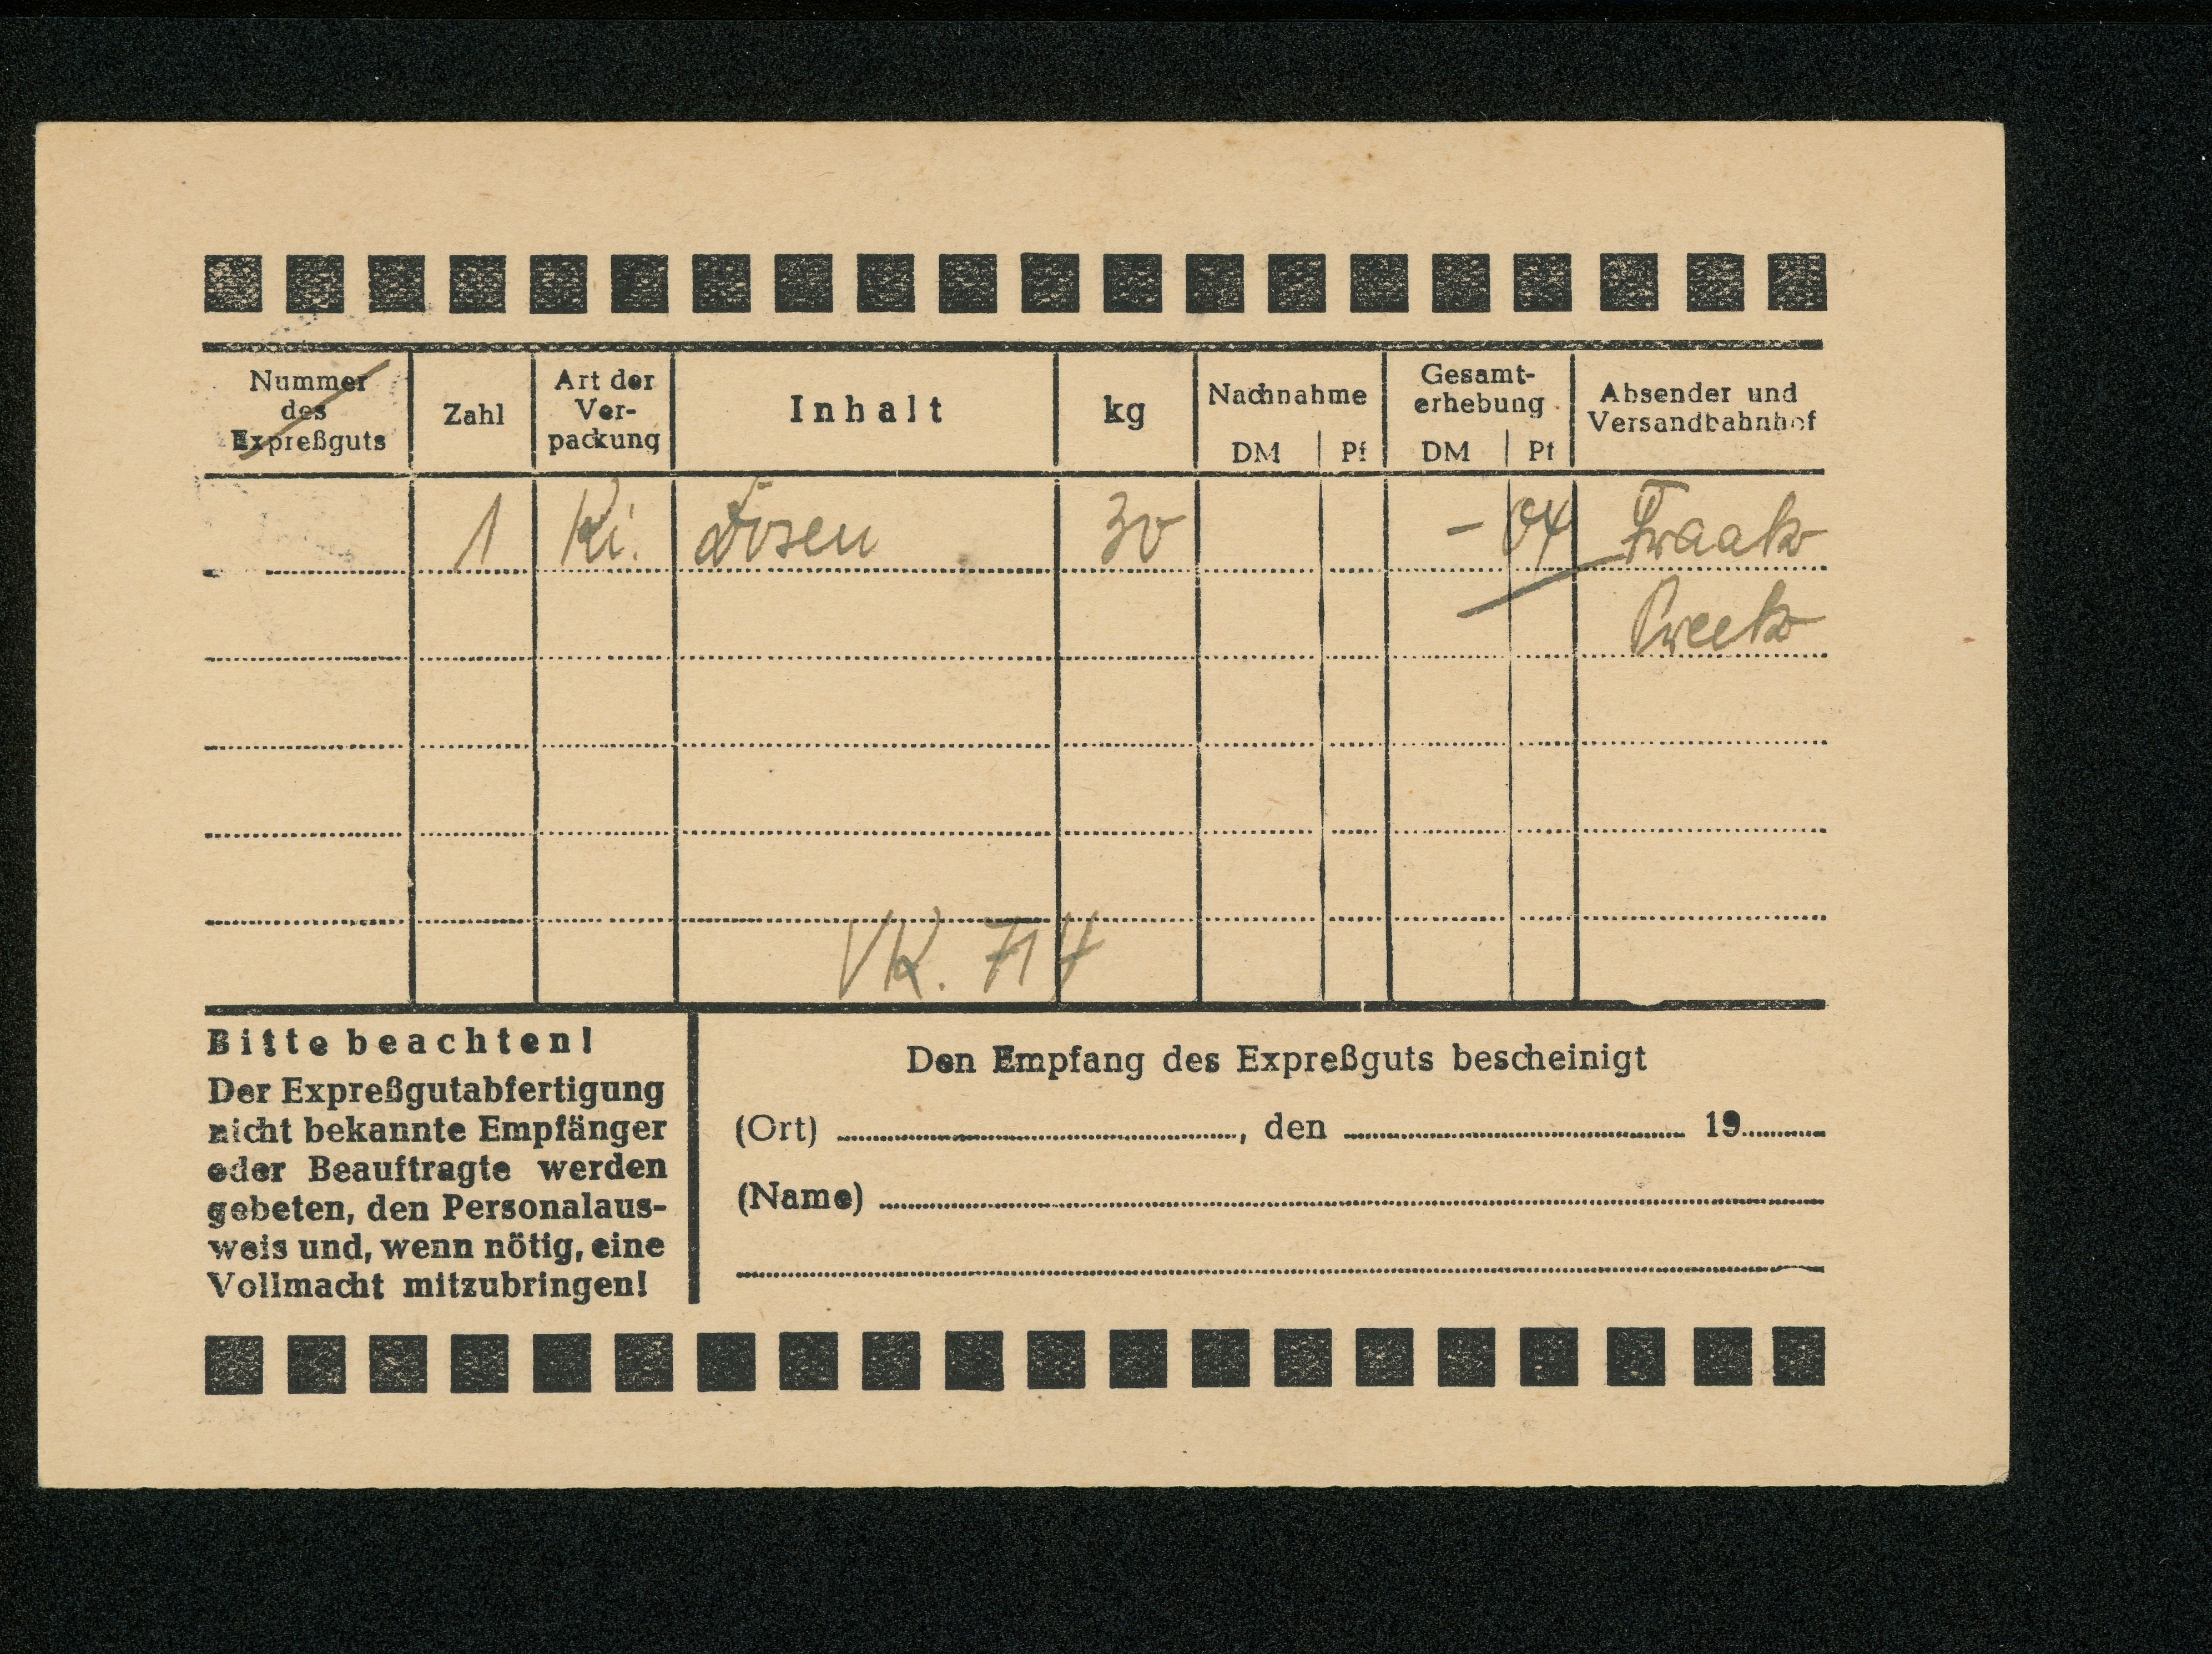 Nummer des Expreßguts
Zahl
Art der Ver-packung
Inhalt
kg
Nachnahme
DM | Pf
Gesamt-erhebung
DM | Pf
Absender und Versandbahnhof
1 Ki. Dosen 30 – 04 Fraak
Preetz
VK. 714
Bitte beachten!
Der Expreßgutabfertigung
nicht bekannte Empfänger
oder Beauftragte werden
gebeten, den Personalaus-
weis und, wenn nötig, eine
Vollmacht mitzubringen!
Den Empfang des Expreßguts bescheinigt
(Ort) , den 19
(Name)